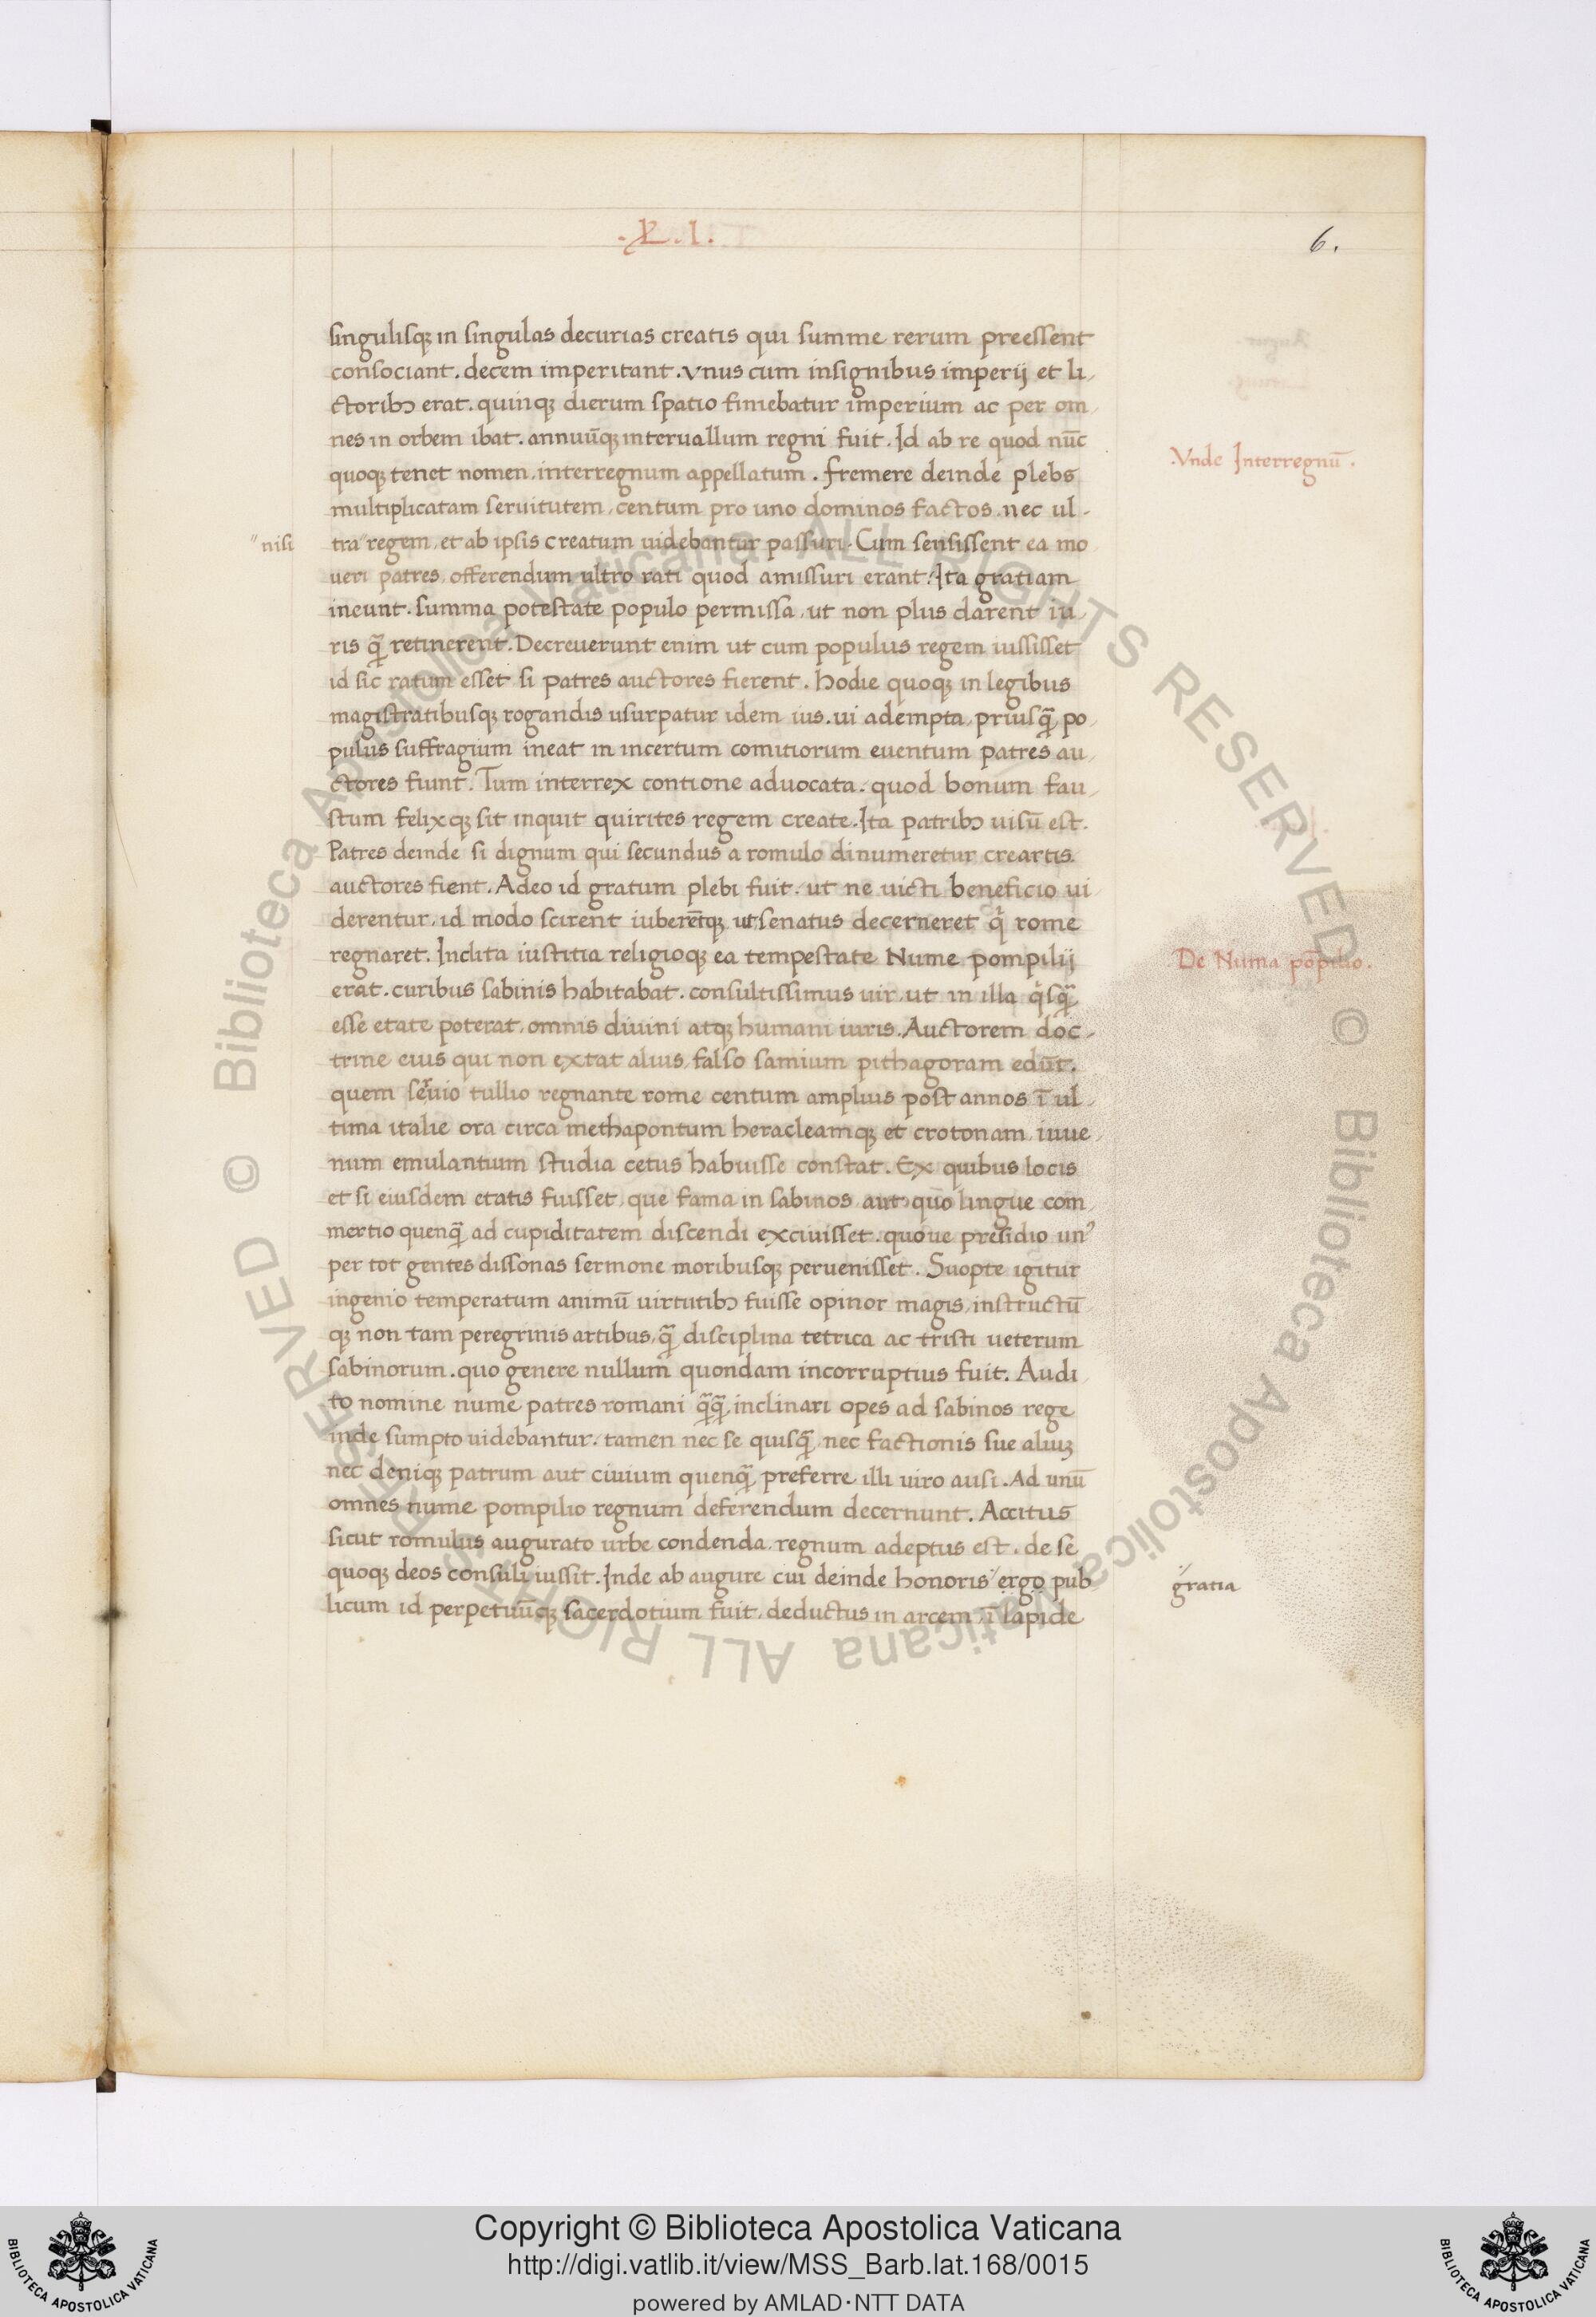 .L.I.
6.
singulisq; in singulas decurias creatis qui summe rerum preessent
consociant. decem imperitant. vnus cum insignibus imperij et li-
ctoribꝫ erat. quinq; dierum spatio finiebatur imperium ac per om
nes in orbem ibat. annuūq; interuallum regni fuit. Id ab re quod nūc
.Vnde Interregnū.
quoq; tenet nomen, interregnum appellatum. fremere deinde plebs
multiplicatam seruitutem, centum pro uno dominos factos. nec ul-
"nisi
tra" regem, et ab ipsis creatum uidebantur passuri. Cum sensissent ea mo
ueri patres, offerendum ultro rati quod amissuri erant. Ita gratiam
ineunt. summa potestate populo permissa, ut non plus darent iu-
ris q̄ retinerent. Decreuerunt enim ut cum populus regem iussisset
id sic ratum esset si patres auctores fierent. hodie quoq; in legibus
magistratibusq; rogandis usurpatur idem ius. ui adempta, priusq̄ po-
pulus suffragium ineat in incertum comitiorum euentum patres au-
ctores fiunt. Tum interrex contione aduocata. quod bonum fau-
stum felixq; sit inquit quirites regem create. Ita patribꝫ uisū est.
Patres deinde si dignum qui secundus a romulo dinumeretur creartis
auctores fient. Adeo id gratum plebi fuit. ut ne uicti beneficio ui
derentur, id modo scirent iuberētq; ut senatus decerneret q̇ rome
regnaret. Inclita iustitia religioq; ea tempestate Nume pompilij
De Numa pōpilio.
erat. curibus sabinis habitabat. consultissimus uir, ut in illa q̇sq̄
esse etate poterat, omnis diuini atq; humani iuris. Auctorem doc-
trine eius qui non extat alius, falso samium pithagoram edūt.
quem seruio tullio regnante rome centum amplius post annos ī ul-
tima italie ora circa methapontum heracleamq; et crotonam, iuue
num emulantium studia cetus habuisse constat. Ex quibus locis
et si eiusdem etatis fuisset, que fama in sabinos, aut quo lingue com
mertio quenq̄ ad cupiditatem discendi exciuisset. quoue presidio un⁹
per tot gentes dissonas sermone moribusq; peruenisset. Suopte igitur
ingenio temperatum animū uirtutibꝫ fuisse opinor magis, instructū
q; non tam peregrinis artibus, q̄ disciplina tetrica ac tristi ueterum
sabinorum. quo genere nullum quondam incorruptius fuit. Audi
to nomine nume patres romani q̄q̄ inclinari opes ad sabinos rege
inde sumpto uidebantur. tamen nec se quisq̄ nec factionis sue aliuꝫ
nec deniq; patrum aut ciuium quenq̄ preferre illi uiro ausi. Ad unū
omnes nume pompilio regnum deferendum decernunt. Accitus
sicut romulus augurato urbe condenda, regnum adeptus est. de se
quoq; deos consuli iussit. Inde ab augure cui deinde honoris" ergo pub
"gratia
licum id perpetuūq; sacerdotium fuit, deductus in arcem, ī lapide
Copyright © Biblioteca Apostolica Vaticana
http://digi.vatlib.it/view/MSS_Barb.lat.168/0015
powered by AMLAD·NTT DATA
BIBLIOTECA APOSTOLICA VATICANA
BIBLIOTECA APOSTOLICA VATICANA
© Biblioteca Apostolica Vaticana ALL RIGHTS RESERVED
© Biblioteca Apostolica Vaticana ALL RIGHTS RESERVED